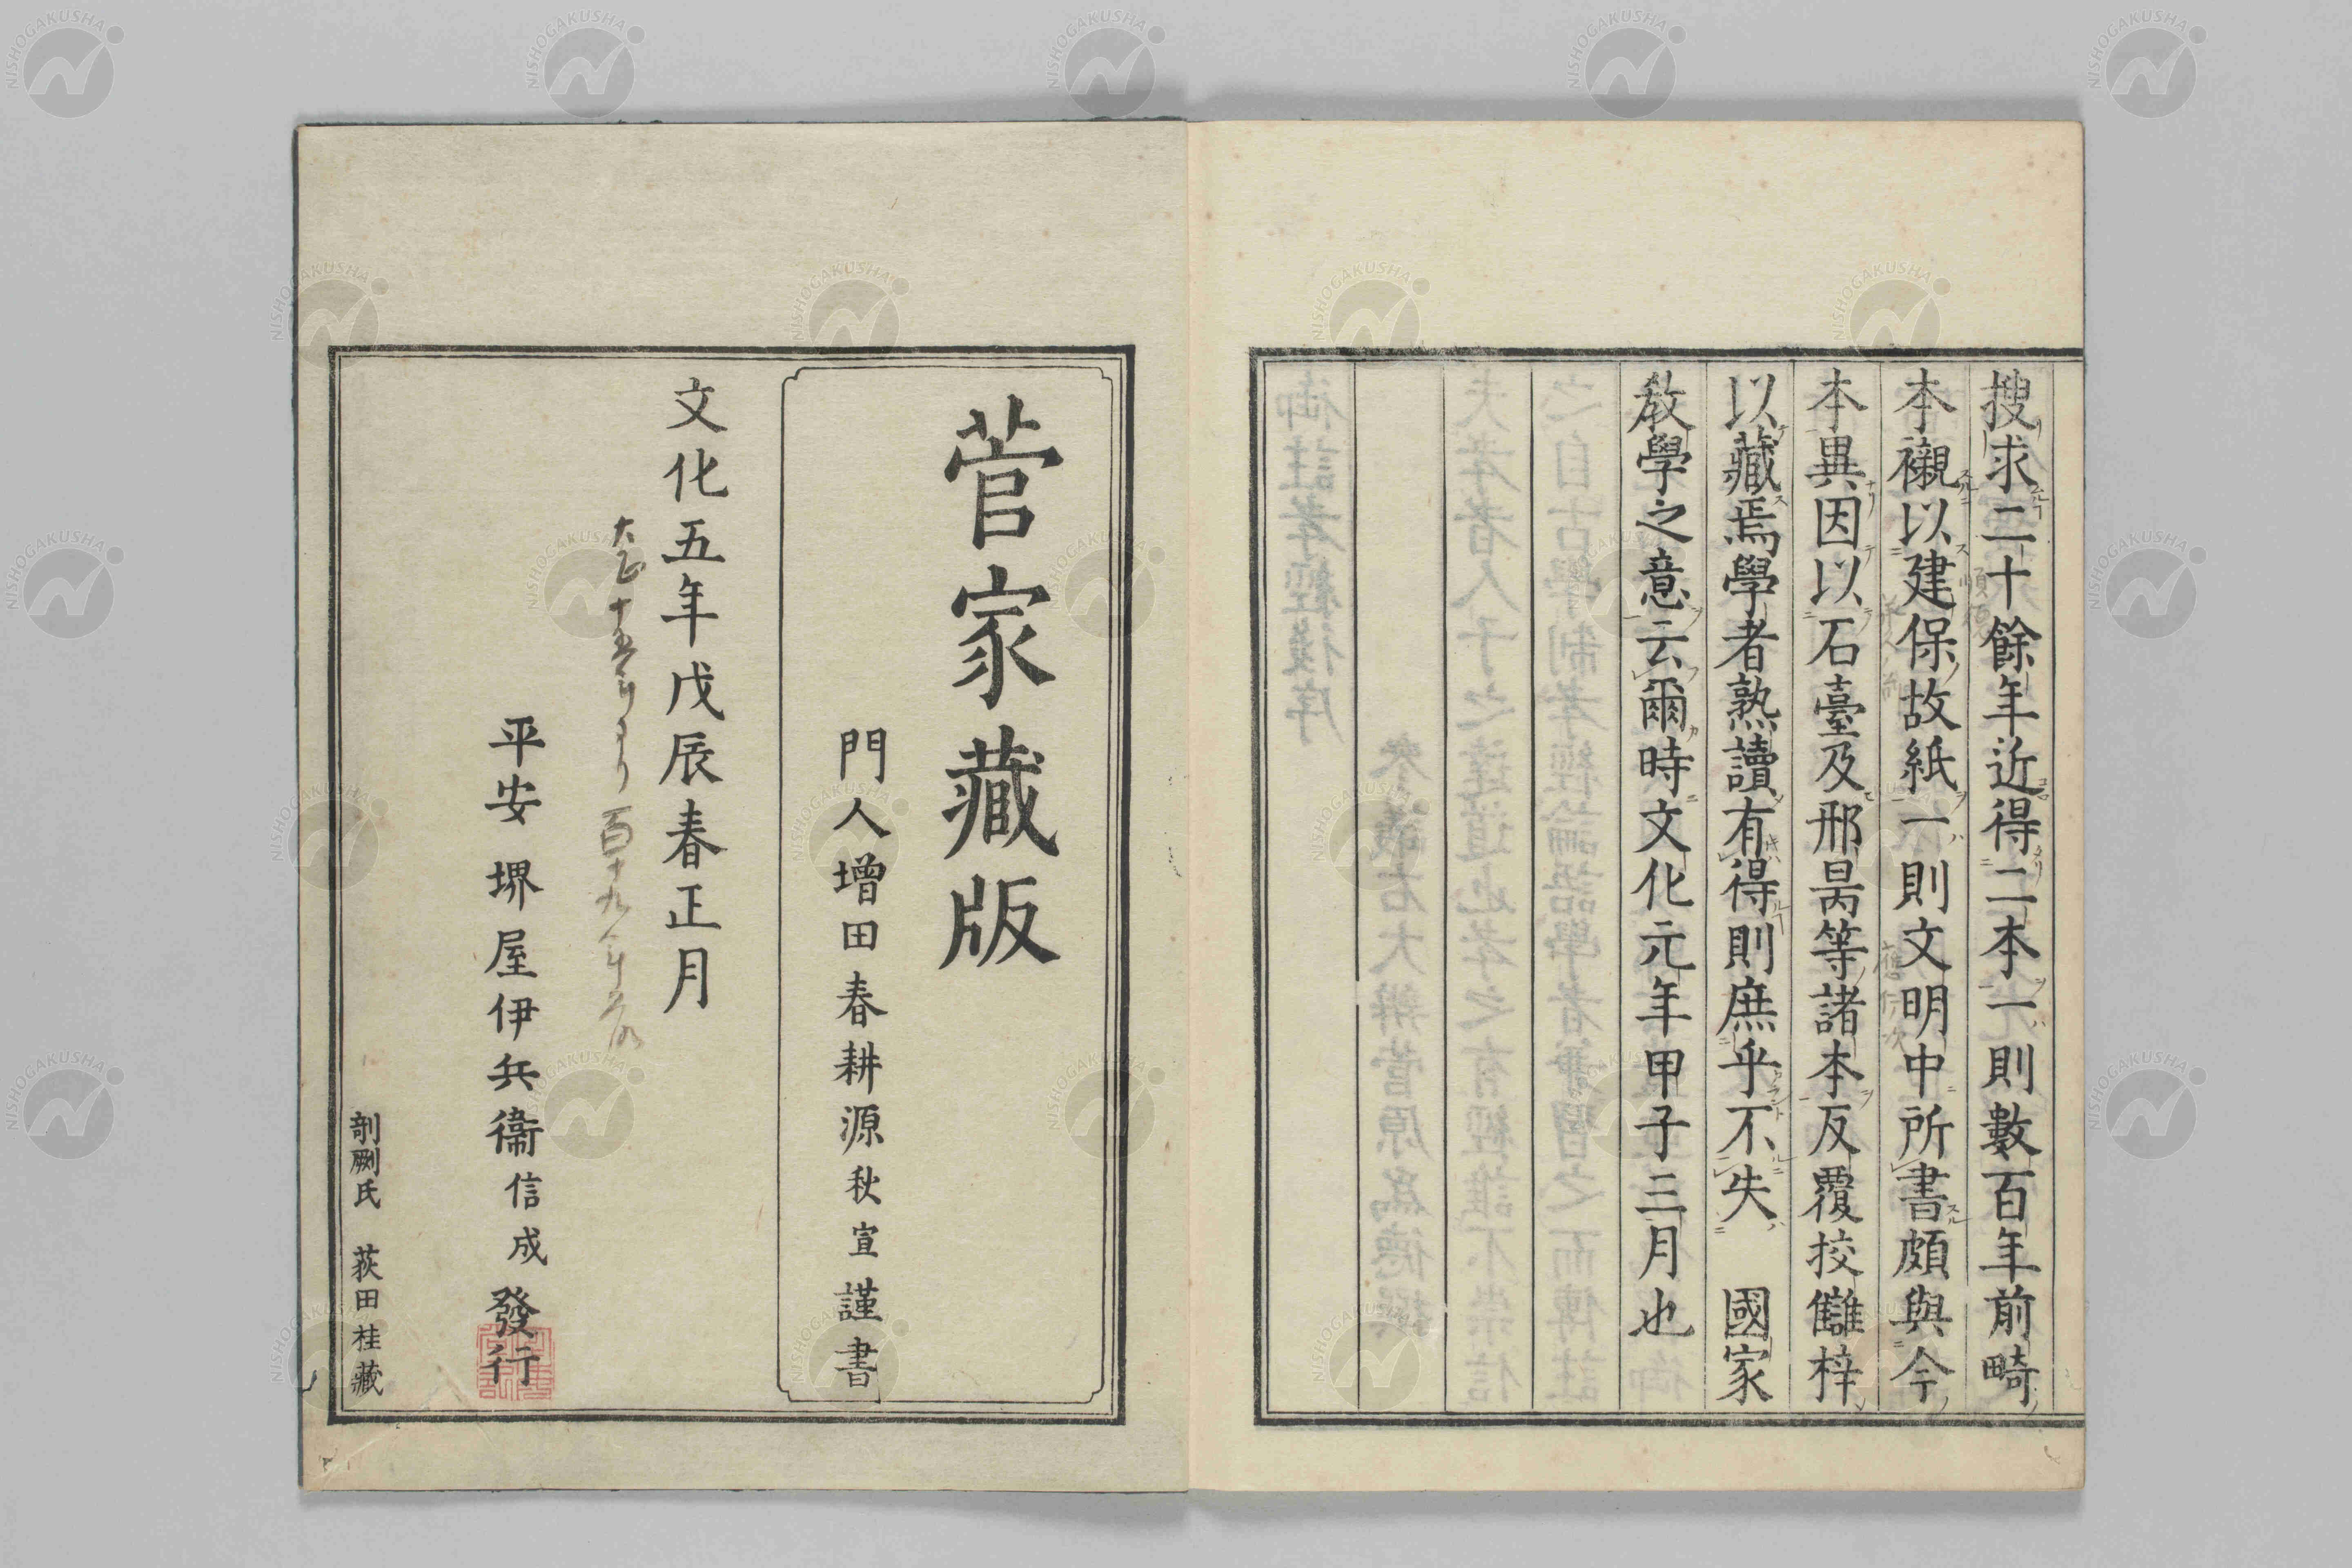 搜求二十餘年近得二本一則數百年前畸
本襯以建保故紙一則文明中所書頗與今
本異因以石臺及邢昺等諸本反覆挍讎梓
以藏焉學者熟讀有得則庶乎不失　國家
教學之意云爾時文化元年甲子三月也
菅家藏版
門人增田春耕源秋宣謹書
文化五年戊辰春正月
平安　堺屋伊兵衞信成發行
剞劂氏　荻田桂藏
NISHOGAKUSHA